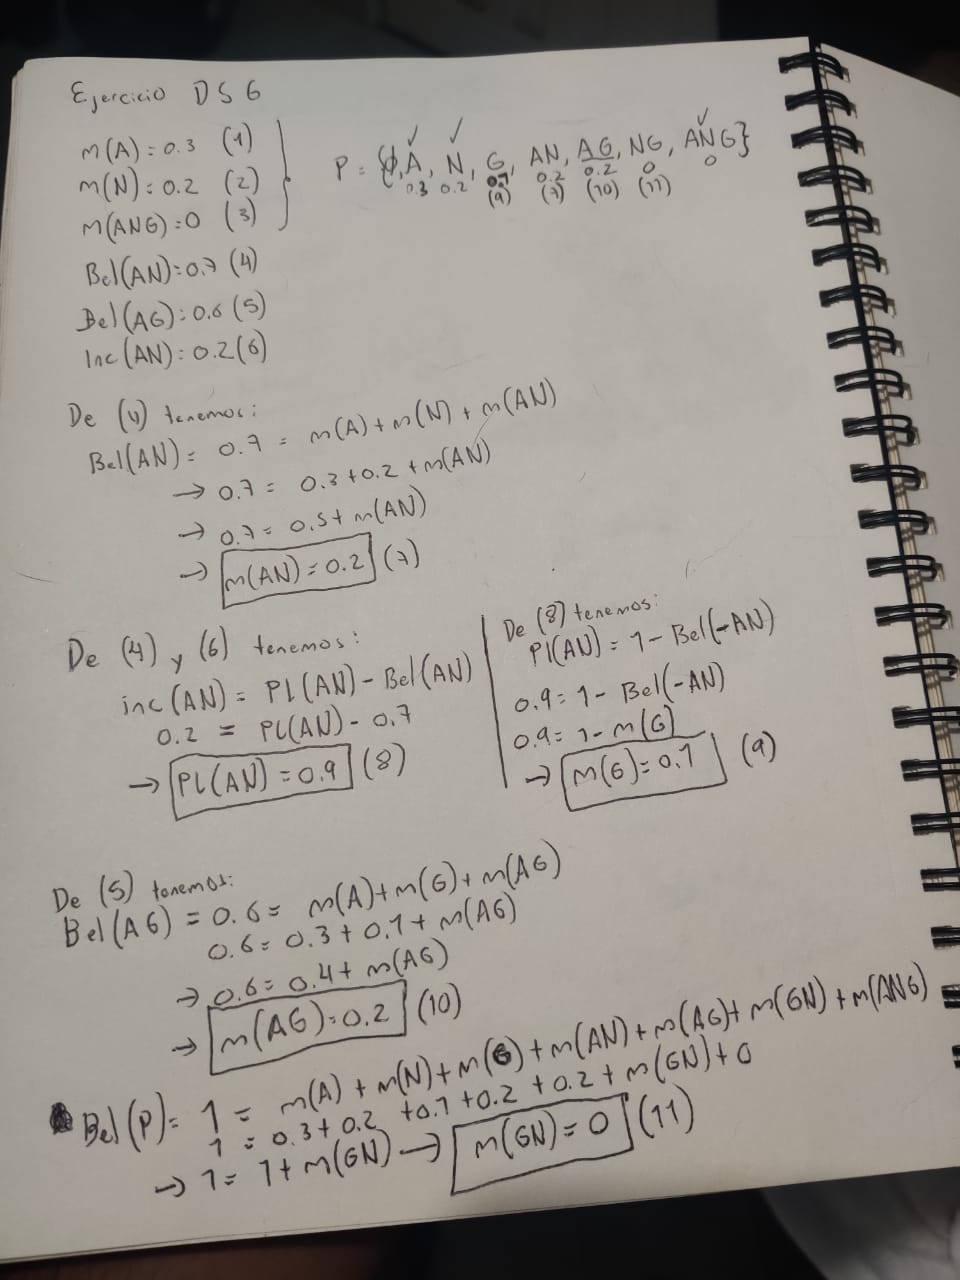 Ejercicio DS6
m(A) = 0.3 (1)
m(N) = 0.2 (2)
m(ANG) = 0 (3)
P = {ϕ, A, N, G, AN, AG, NG, ANG}
✓ ✓ ✓
0.3 0.2 0.1 0.2 0.2 0 0
(9) (7) (10) (11)
Bel(AN) = 0.7 (4)
Bel(AG) = 0.6 (5)
Inc(AN) = 0.2 (6)
De (4) tenemos:
Bel(AN) = 0.7 = m(A) + m(N) + m(AN)
→ 0.7 = 0.3 + 0.2 + m(AN)
→ 0.7 = 0.5 + m(AN)
→ m(AN) = 0.2 (7)
De (4) y (6) tenemos:
inc(AN) = PL(AN) - Bel(AN)
0.2 = PL(AN) - 0.7
→ PL(AN) = 0.9 (8)
De (8) tenemos:
Pl(AN) = 1 - Bel(-AN)
0.9 = 1 - Bel(-AN)
0.9 = 1 - m(G)
→ m(G) = 0.1 (9)
De (5) tenemos:
Bel(AG) = 0.6 = m(A) + m(G) + m(AG)
0.6 = 0.3 + 0.1 + m(AG)
→ 0.6 = 0.4 + m(AG)
→ m(AG) = 0.2 (10)
Bel(P) = 1 = m(A) + m(N) + m(G) + m(AN) + m(AG) + m(GN) + m(ANG)
1 = 0.3 + 0.2 + 0.1 + 0.2 + 0.2 + m(GN) + 0
→ 1 = 1 + m(GN) → m(GN) = 0 (11)